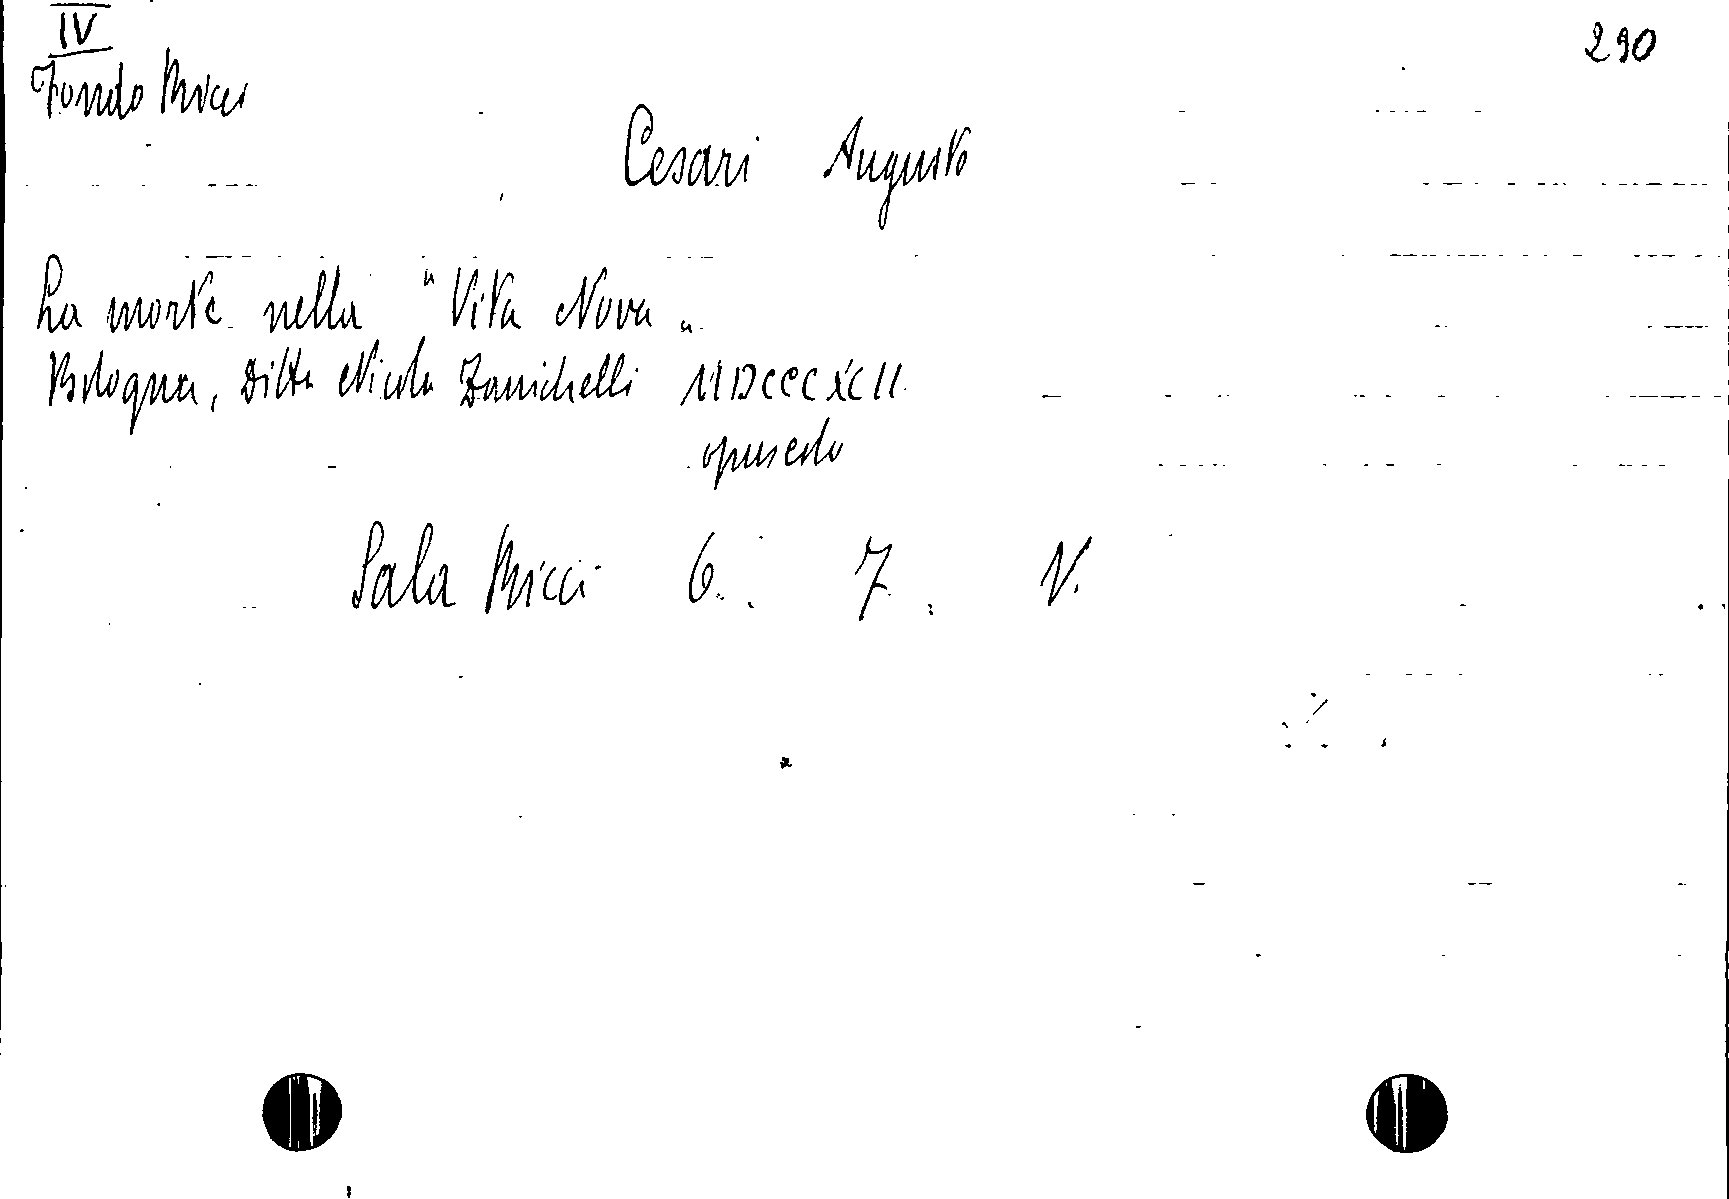 IV
290
Fondo Ricci
Cesari Augusto
La morte nella "Vita Nova„
Bologna, Ditta Nicola Zanichelli MDCCCXCII
opuscolo
Sala Ricci 6. 7. V.